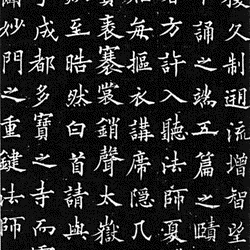 久制迥流增智
誦之端五篇之賾
方許入聽法師夏
每摳衣講席隱几
褰裳銷聲太嶽
至晧然白首請與
成都多寶之寺而
妙門之重鍵法師